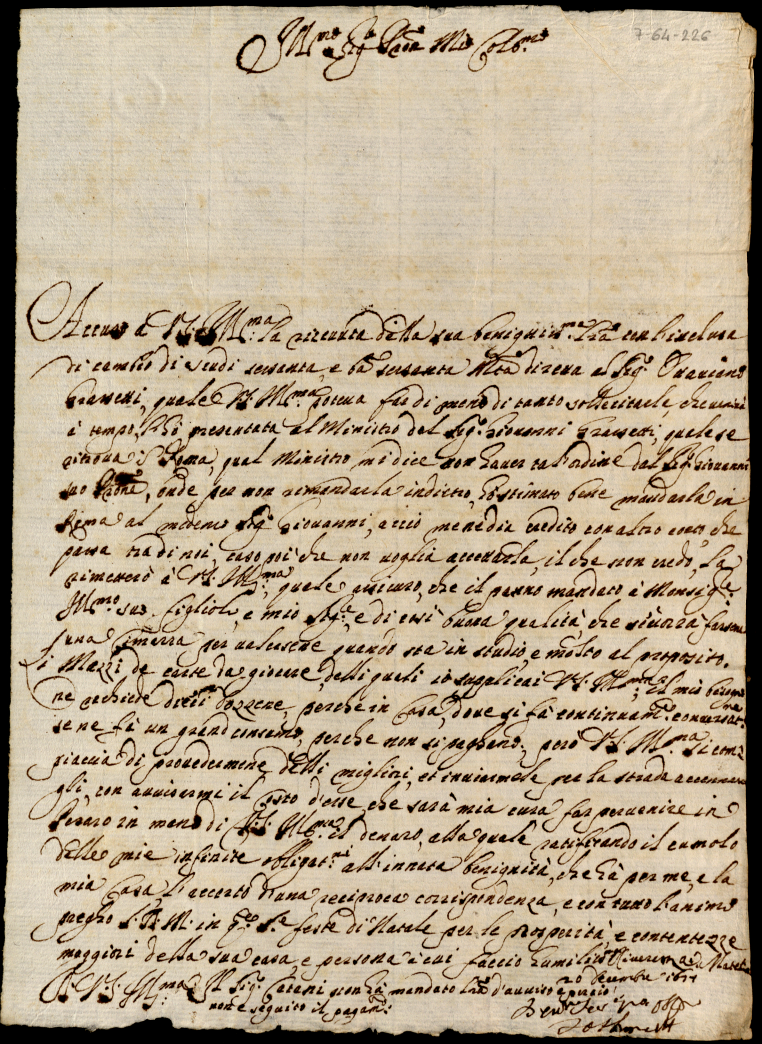 7-64-226
Ill.mo Sig.r Pron Mio Col.mo
Accuso à V.S. Ill.ma la riceuuta della sua benignis.ma l'inclusa
di cambio di scudi sessanta, e b. sessanta diretta al Sig.r Ottauiano
Grassetti, quale V.S. Ill.ma poteua far di meno di tanto sollecitarle, che
à tempo, l'hò presentata al Ministro del Sig.r Giouanni Grassetti, quale se
ritroua à Roma, qual Ministro, mi dice non hauer tal'ordine dal Sig.r Giouanni
suo Prone, onde per non remandarla indietro, hò stimato bene mandarla in
Roma al medemo Sig.r Giouanni, acciò me ne dia credito con altro conto, che
passa trà di noi, caso poi che non voglia accettarla, il che non credo, la
rimetterò à V.S. Ill.ma, quale assicuro, che il panno mandato à Monsig.re
Ill.mo suo figliolo, e mio Sig.re, è di così buona qualità, che
una Zimarra per ualersene quando stà in studio, e molto al proposito.
I Mazzi de carte da giocare, delli quali io supplicai V.S. Ill.ma, il mio
ne richiede dieci dozzene, perche in Casa, doue si fà continuam.te
se ne fà un gran consumo, perche non si pagano; però V.S. Ill.ma si com
piaccia di prouedermene delli migliori, et inuiarmele per la strada
gli, con auuisarmi il costo d'esse che sarà mia cura far peruenire in
Pesaro in mano di V.S. Ill.ma il denaro, alla quale ratificando il cumolo
delle mie infinite obligat.ni all'innata benignità, che hà per me, e la
mia Casa, l'accerto d'una reciproca corrispondenza, e con tutto l'animo
prego S.D.M. in q.te S.te feste di Natale per le prosperità, e contentezze
maggiori della sua casa e persona à cui faccio humilis.a riuerenza
D. V.S. Ill.ma Il Sig.r Catani non hà mandato l'ra d'auuiso
20 Decembre
non è seguito il pagam.to